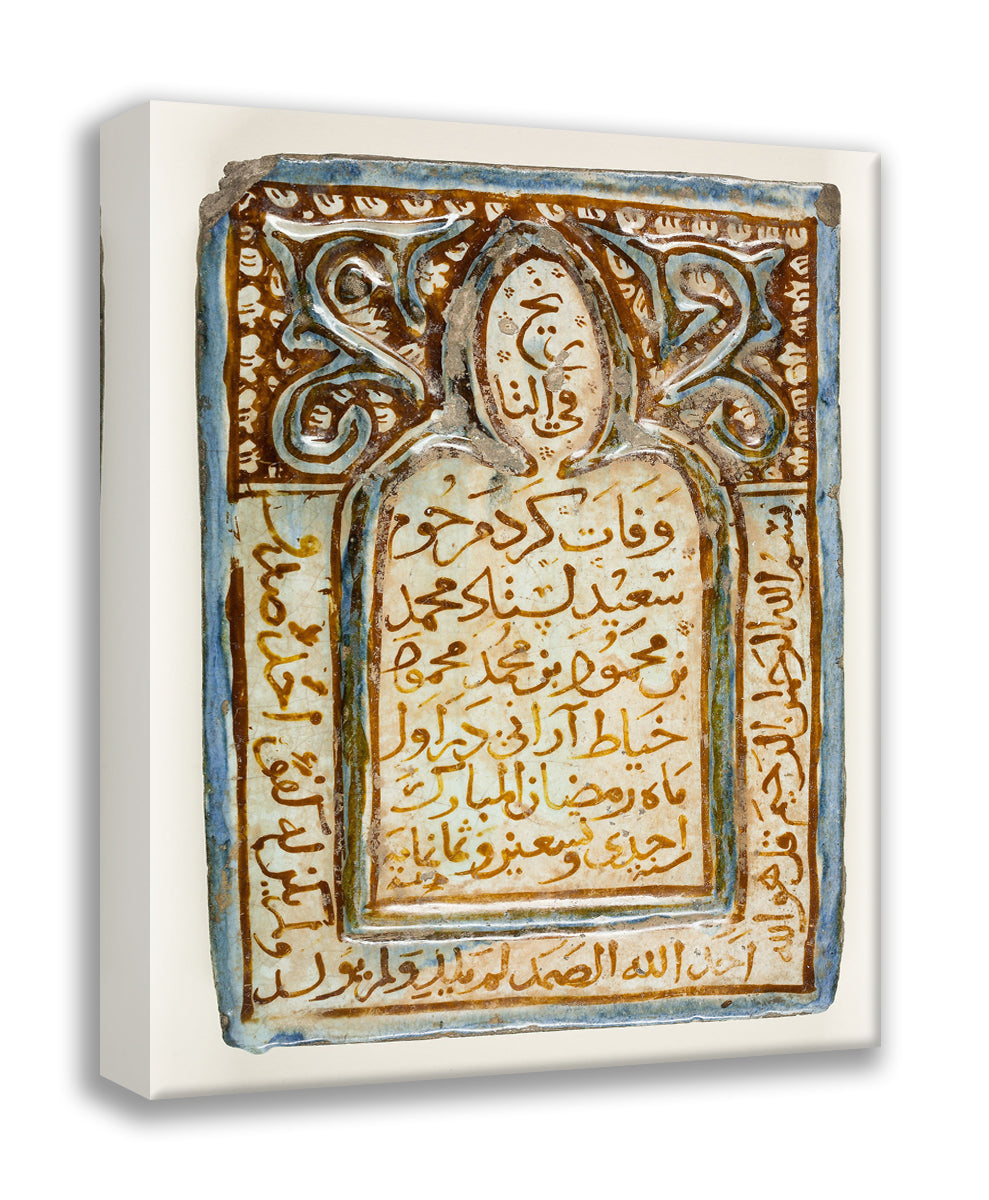 تاریخ
في النا
وَفَات كَرد مَرحُوم
سَعِید لسناد محمد
بن محمود بن محمد محمود
خیاط آرانی در اول
ماه رمضان المبارک
سنه احدی و تسعین و ثمانمایة
بسم الله الرحمن الرحيم قل هو الله
احد الله الصمد لم يلد ولم يولد
ولم يكن له كفوا احد